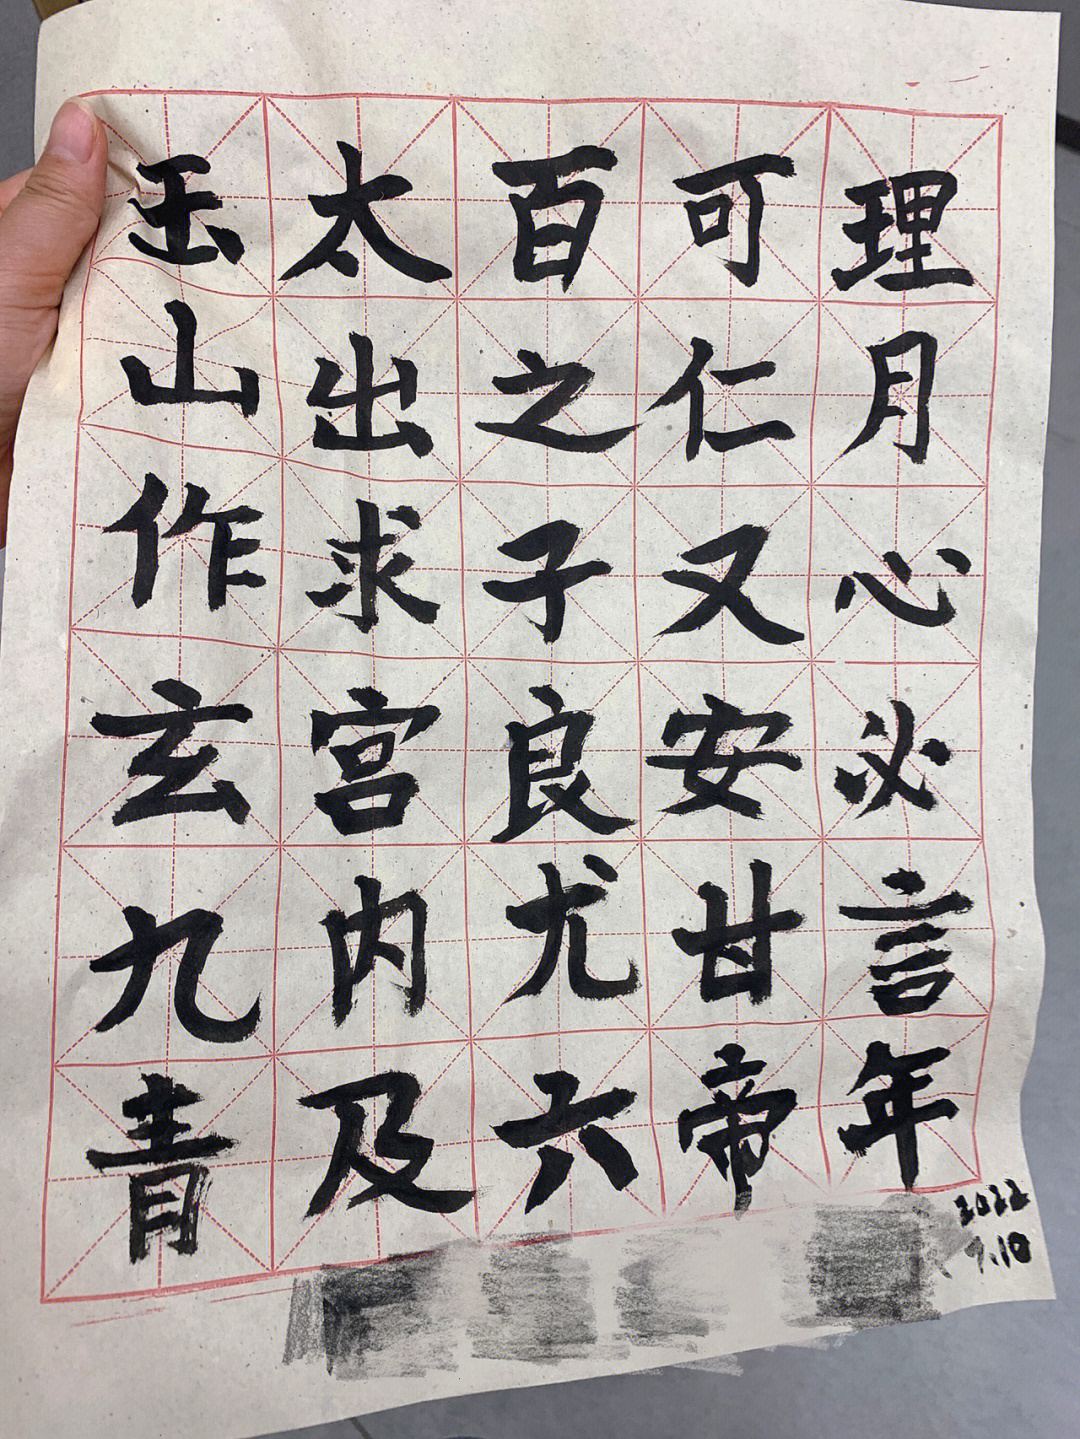 玉太百可理
山出之仁月
作求子又心
玄宫良安必
九内尤甘言
青及六帝年
2022
7.10